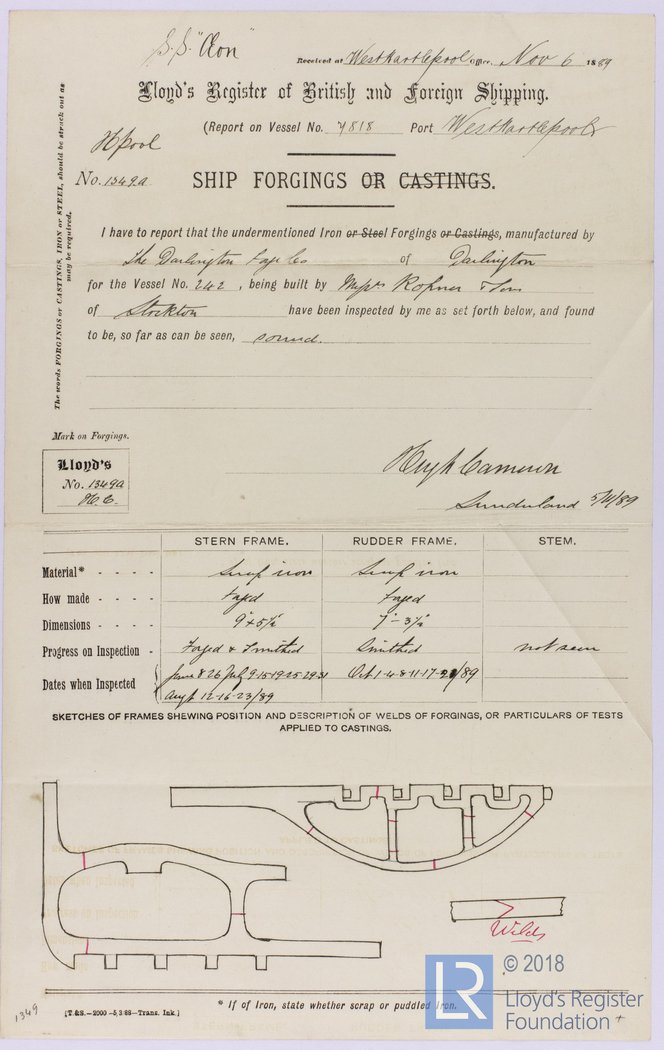 S.S. "Æon"
Received at West Hartlepool Office, Nov 6 1889
Lloyd's Register of British and Foreign Shipping.
(Report on Vessel No. 7818 Port West Hartlepool
Hpool
No. 1349a SHIP FORGINGS OR CASTINGS.
The words FORGINGS or CASTINGS, IRON or STEEL, should be struck out as
may be required.
I have to report that the undermentioned Iron or Steel Forgings or Castings, manufactured by
The Darlington Forge Co of Darlington
for the Vessel No. 242, being built by Messrs Ropner & Son
of Stockton have been inspected by me as set forth below, and found
to be, so far as can be seen, sound.
Mark on Forgings.
Lloyd's
No. 1349a
H.C.
Hugh Cameron
Sunderland 5/11/89
STERN FRAME. RUDDER FRAME. STEM.
Material* - - - - Scrap iron Scrap iron
How made - - - - Forged Forged
Dimensions - - - - 9" x 5½" 7" - 3½"
Progress on Inspection - Forged & Smithied Smithied not seen
Dates when Inspected June 8 26 July 9-15-19-25-29 31 Oct 1-4-8-11-17- /89
Augt 12-16-23/89
SKETCHES OF FRAMES SHEWING POSITION AND DESCRIPTION OF WELDS OF FORGINGS, OR PARTICULARS OF TESTS
APPLIED TO CASTINGS.
Welds
* If of Iron, state whether scrap or puddled Iron.
[T.&S.—2000—5.3.88—Trans. Ink.]
1349
LR
© 2018
Lloyd's Register
Foundation